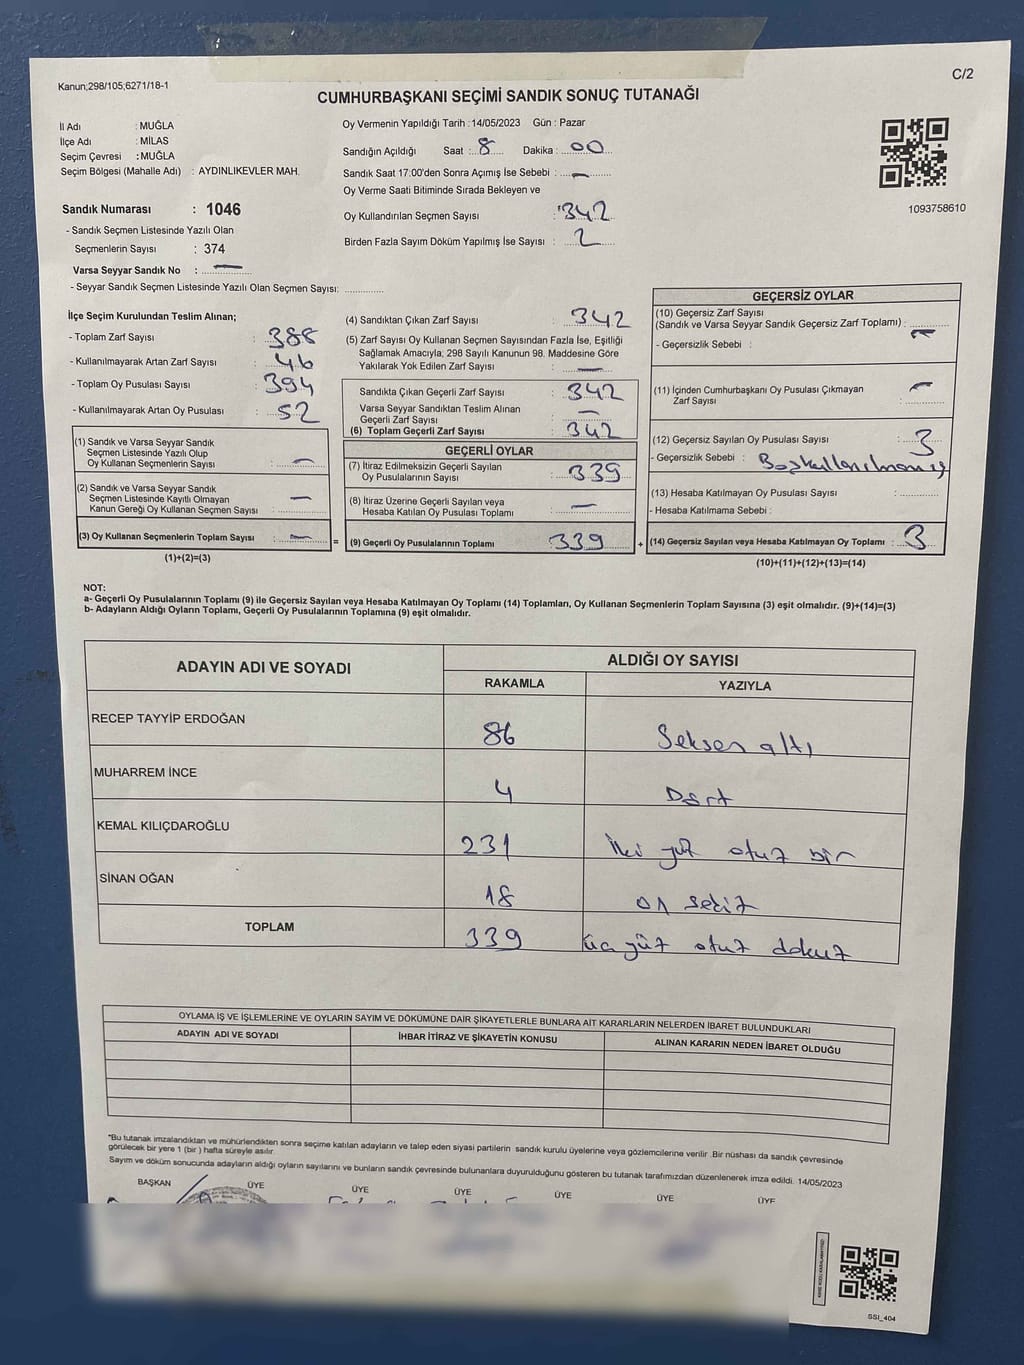 Kanun;298/105;6271/18-1
C/2
CUMHURBAŞKANI SEÇİMİ SANDIK SONUÇ TUTANAĞI
İl Adı : MUĞLA
İlçe Adı : MİLAS
Seçim Çevresi : MUĞLA
Seçim Bölgesi (Mahalle Adı) : AYDINLIKEVLER MAH.
Sandık Numarası : 1046
- Sandık Seçmen Listesinde Yazılı Olan
Seçmenlerin Sayısı : 374
Varsa Seyyar Sandık No : —
- Seyyar Sandık Seçmen Listesinde Yazılı Olan Seçmen Sayısı: ............
Oy Vermenin Yapıldığı Tarih : 14/05/2023 Gün : Pazar
Sandığın Açıldığı Saat : 8 Dakika : 00
Sandık Saat 17:00'den Sonra Açımış İse Sebebi : —
Oy Verme Saati Bitiminde Sırada Bekleyen ve
Oy Kullandırılan Seçmen Sayısı : 342
Birden Fazla Sayım Döküm Yapılmış İse Sayısı : 2
1093758610
İlçe Seçim Kurulundan Teslim Alınan;
- Toplam Zarf Sayısı : 388
- Kullanılmayarak Artan Zarf Sayısı : 46
- Toplam Oy Pusulası Sayısı : 394
- Kullanılmayarak Artan Oy Pusulası : 52
(1) Sandık ve Varsa Seyyar Sandık
Seçmen Listesinde Yazılı Olup
Oy Kullanan Seçmenlerin Sayısı : —
(2) Sandık ve Varsa Seyyar Sandık
Seçmen Listesinde Kayıtlı Olmayan
Kanun Gereği Oy Kullanan Seçmen Sayısı : —
(3) Oy Kullanan Seçmenlerin Toplam Sayısı : — =
(1)+(2)=(3)
(4) Sandıktan Çıkan Zarf Sayısı : 342
(5) Zarf Sayısı Oy Kullanan Seçmen Sayısından Fazla İse, Eşitliği
Sağlamak Amacıyla; 298 Sayılı Kanunun 98. Maddesine Göre
Yakılarak Yok Edilen Zarf Sayısı : —
Sandıkta Çıkan Geçerli Zarf Sayısı : 342
Varsa Seyyar Sandıktan Teslim Alınan
Geçerli Zarf Sayısı : —
(6) Toplam Geçerli Zarf Sayısı : 342
GEÇERLİ OYLAR
(7) İtiraz Edilmeksizin Geçerli Sayılan
Oy Pusulalarının Sayısı : 339
(8) İtiraz Üzerine Geçerli Sayılan veya
Hesaba Katılan Oy Pusulası Toplamı : —
(9) Geçerli Oy Pusulalarının Toplamı : 339 +
GEÇERSİZ OYLAR
(10) Geçersiz Zarf Sayısı
(Sandık ve Varsa Seyyar Sandık Geçersiz Zarf Toplamı) : —
- Geçersizlik Sebebi :
(11) İçinden Cumhurbaşkanı Oy Pusulası Çıkmayan
Zarf Sayısı : —
(12) Geçersiz Sayılan Oy Pusulası Sayısı : 3
- Geçersizlik Sebebi :
(13) Hesaba Katılmayan Oy Pusulası Sayısı : ............
- Hesaba Katılmama Sebebi :
(14) Geçersiz Sayılan veya Hesaba Katılmayan Oy Toplamı : 3
(10)+(11)+(12)+(13)=(14)
NOT:
a- Geçerli Oy Pusulalarının Toplamı (9) ile Geçersiz Sayılan veya Hesaba Katılmayan Oy Toplamı (14) Toplamları, Oy Kullanan Seçmenlerin Toplam Sayısına (3) eşit olmalıdır. (9)+(14)=(3)
b- Adayların Aldığı Oyların Toplamı, Geçerli Oy Pusulalarının Toplamına (9) eşit olmalıdır.
ADAYIN ADI VE SOYADI
ALDIĞI OY SAYISI
RAKAMLA YAZIYLA
RECEP TAYYİP ERDOĞAN 86 Seksen altı
MUHARREM İNCE 4 Dört
KEMAL KILIÇDAROĞLU 231 İki yüz otuz bir
SİNAN OĞAN 18 on sekiz
TOPLAM 339 üç yüz otuz dokuz
OYLAMA İŞ VE İŞLEMLERİNE VE OYLARIN SAYIM VE DÖKÜMÜNE DAİR ŞİKAYETLERLE BUNLARA AİT KARARLARIN NELERDEN İBARET BULUNDUKLARI
ADAYIN ADI VE SOYADI İHBAR İTİRAZ VE ŞİKAYETİN KONUSU ALINAN KARARIN NEDEN İBARET OLDUĞU
*Bu tutanak imzalandıktan ve mühürlendikten sonra seçime katılan adayların ve talep eden siyasi partilerin sandık kurulu üyelerine veya gözlemcilerine verilir .Bir nüshası da sandık çevresinde
görülecek bir yere 1 (bir ) hafta süreyle asılır.
Sayım ve döküm sonucunda adayların aldığı oyların sayılarını ve bunların sandık çevresinde bulunanlara duyurulduğunu gösteren bu tutanak tarafımızdan düzenlenerek imza edildi. 14/05/2023
BAŞKAN ÜYE ÜYE ÜYE ÜYE ÜYE ÜYE
SSI_404